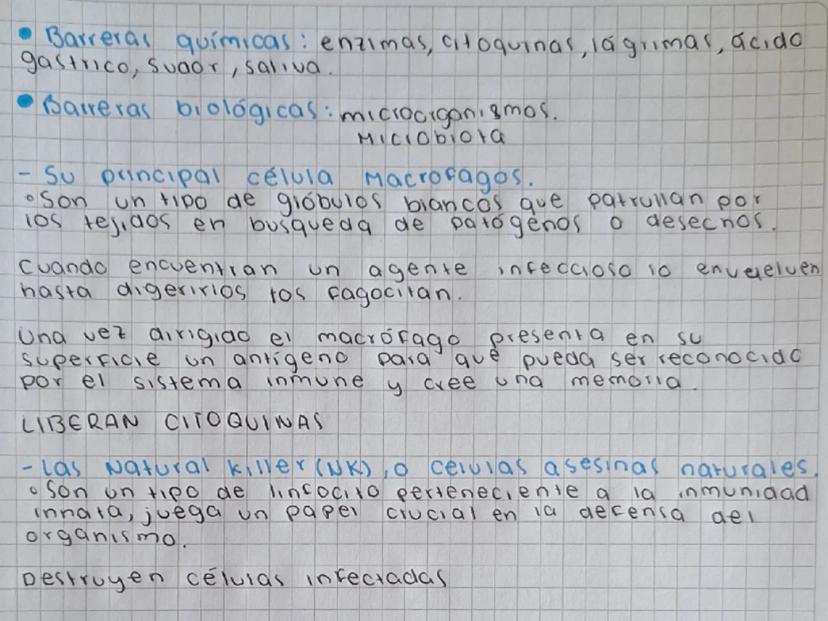 • Barreras químicas: enzimas, citoquinas, lágrimas, ácido
gastrico, sudor, saliva.
• Barreras biológicas: microorganismos.
Microbiota
- Su principal célula Macrofagos.
◦ Son un tipo de glóbulos blancos que patrullan por
los tejidos en busqueda de patógenos o desechos.
Cuando encuentran un agente infeccioso lo envuelven
hasta digerirlos los fagocitan.
Una vez dirigido el macrófago presenta en su
superficie un antígeno para que pueda ser reconocido
por el sistema inmune y cree una memoria.
LIBERAN CITOQUINAS
- Las Natural Killer (NK), o celulas asesinas naturales.
◦ Son un tipo de linfocito perteneciente a la inmunidad
innata, juega un papel crucial en la defensa del
organismo.
Destruyen células infectadas